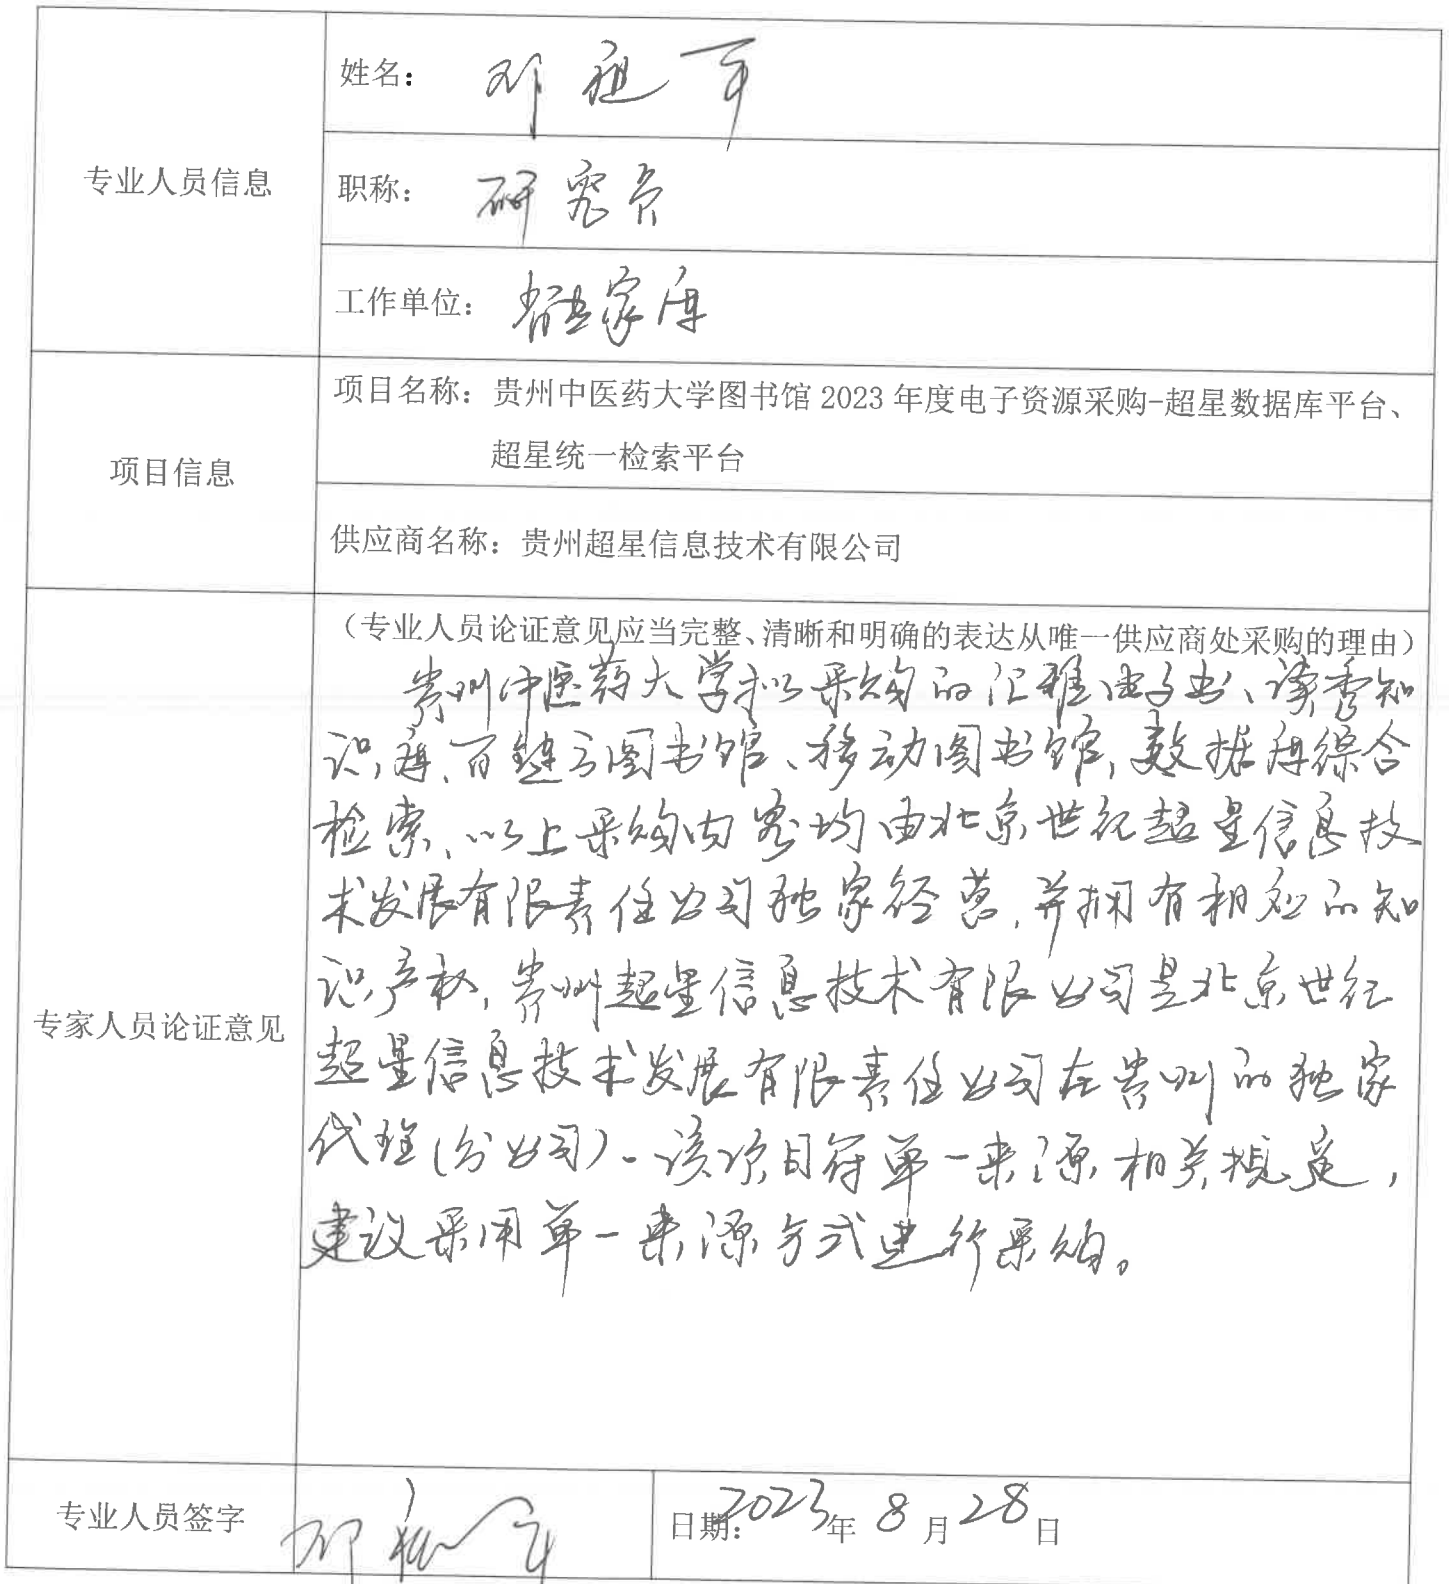 姓名： 邓祖
专业人员信息
职称： 研究员
工作单位： 省专家库
项目名称：贵州中医药大学图书馆 2023 年度电子资源采购-超星数据库平台、
超星统一检索平台
项目信息
供应商名称：贵州超星信息技术有限公司
（专业人员论证意见应当完整、清晰和明确的表达从唯一供应商处采购的理由）
贵州中医药大学拟采购的汇雅电子书、读秀知
识库、百链云图书馆、移动图书馆，数据库综合
检索、以上采购内容均由北京世纪超星信息技
术发展有限责任公司独家经营，并拥有相应的知
识产权，贵州超星信息技术有限公司是北京世纪
专家人员论证意见
超星信息技术发展有限责任公司在贵州的独家
代理(分公司)。该项目符单一来源相关规定，
建议采用单一来源方式进行采购。
专业人员签字 邓祖
日期：2023年 8 月 28 日